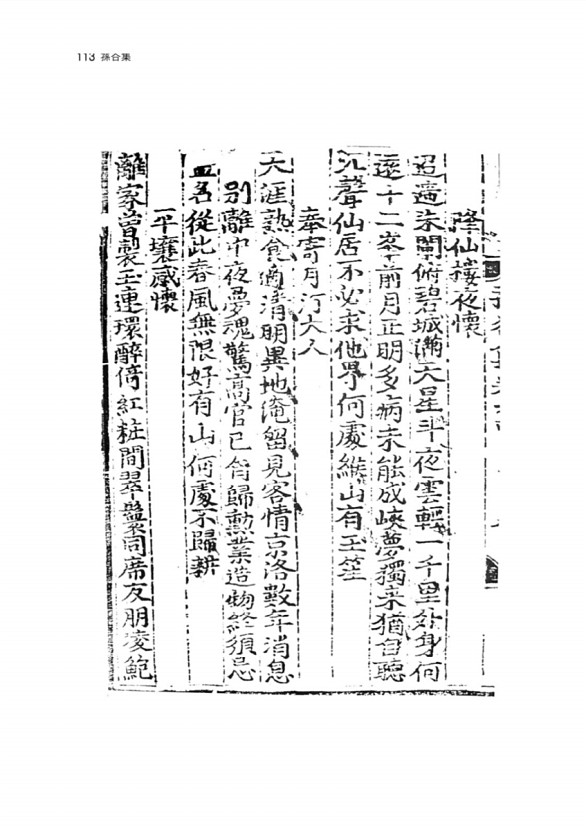 113 孫合集
降仙樓夜懷
迢遞朱闌俯碧城滿天星斗夜雲輕一千里外身何
遠十二峯前月正明多病未能成峽夢獨来猶自聽
沉聲仙居不必求他界何處緱山有玉笙
奉寄月汀大人
天涯熟食適清明異地淹留見客情京洛數年消息
別離中夜夢魂驚高官已貴歸勲業造物終須忌
名從此春風無限好有山何處不歸耕
平壤感懷
離家曽製玉連環醉倚紅粧間翠鬟同席友朋凌鮑